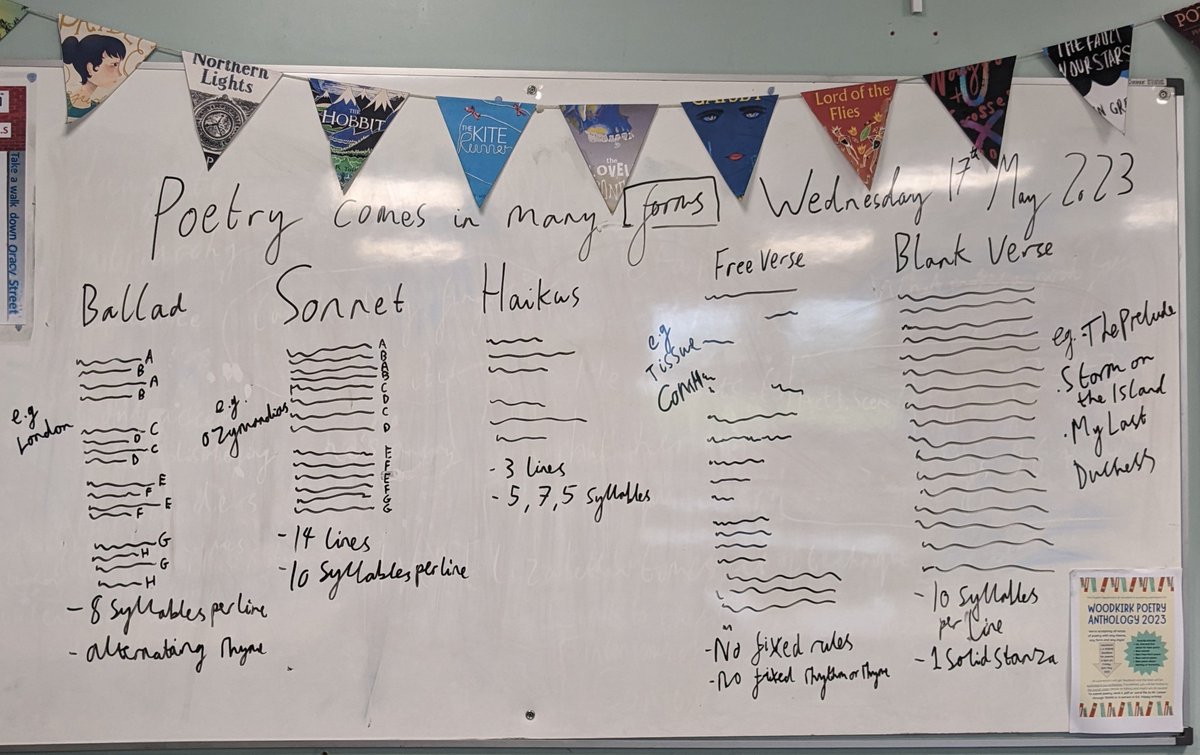 Northern
Lights
THE
HOBBIT
THE
KITE
Runner
the
Lord of the
Flies
THE FAULT
Take a walk down Oracy Street
Poetry comes in many forms
Wednesday 17th May 2023
Ballad
A
B
A
B
C
D
C
D
E
F
E
F
G
H
G
H
e.g
London
- 8 syllables per line
- alternating rhyme
Sonnet
A
B
A
B
C
D
C
D
E
F
E
F
G
G
e.g.
Ozymandias
- 14 lines
- 10 syllables per line
Haikus
- 3 lines
- 5, 7, 5 syllables
Free Verse
e.g
Tissue
- No fixed rules
- No fixed rhythm or rhyme
Blank Verse
eg. - The Prelude
. Storm on
the Island
. My Last
Duchess
- 10 syllables
per line
- 1 solid stanza
WOODKIRK POETRY
ANTHOLOGY 2023